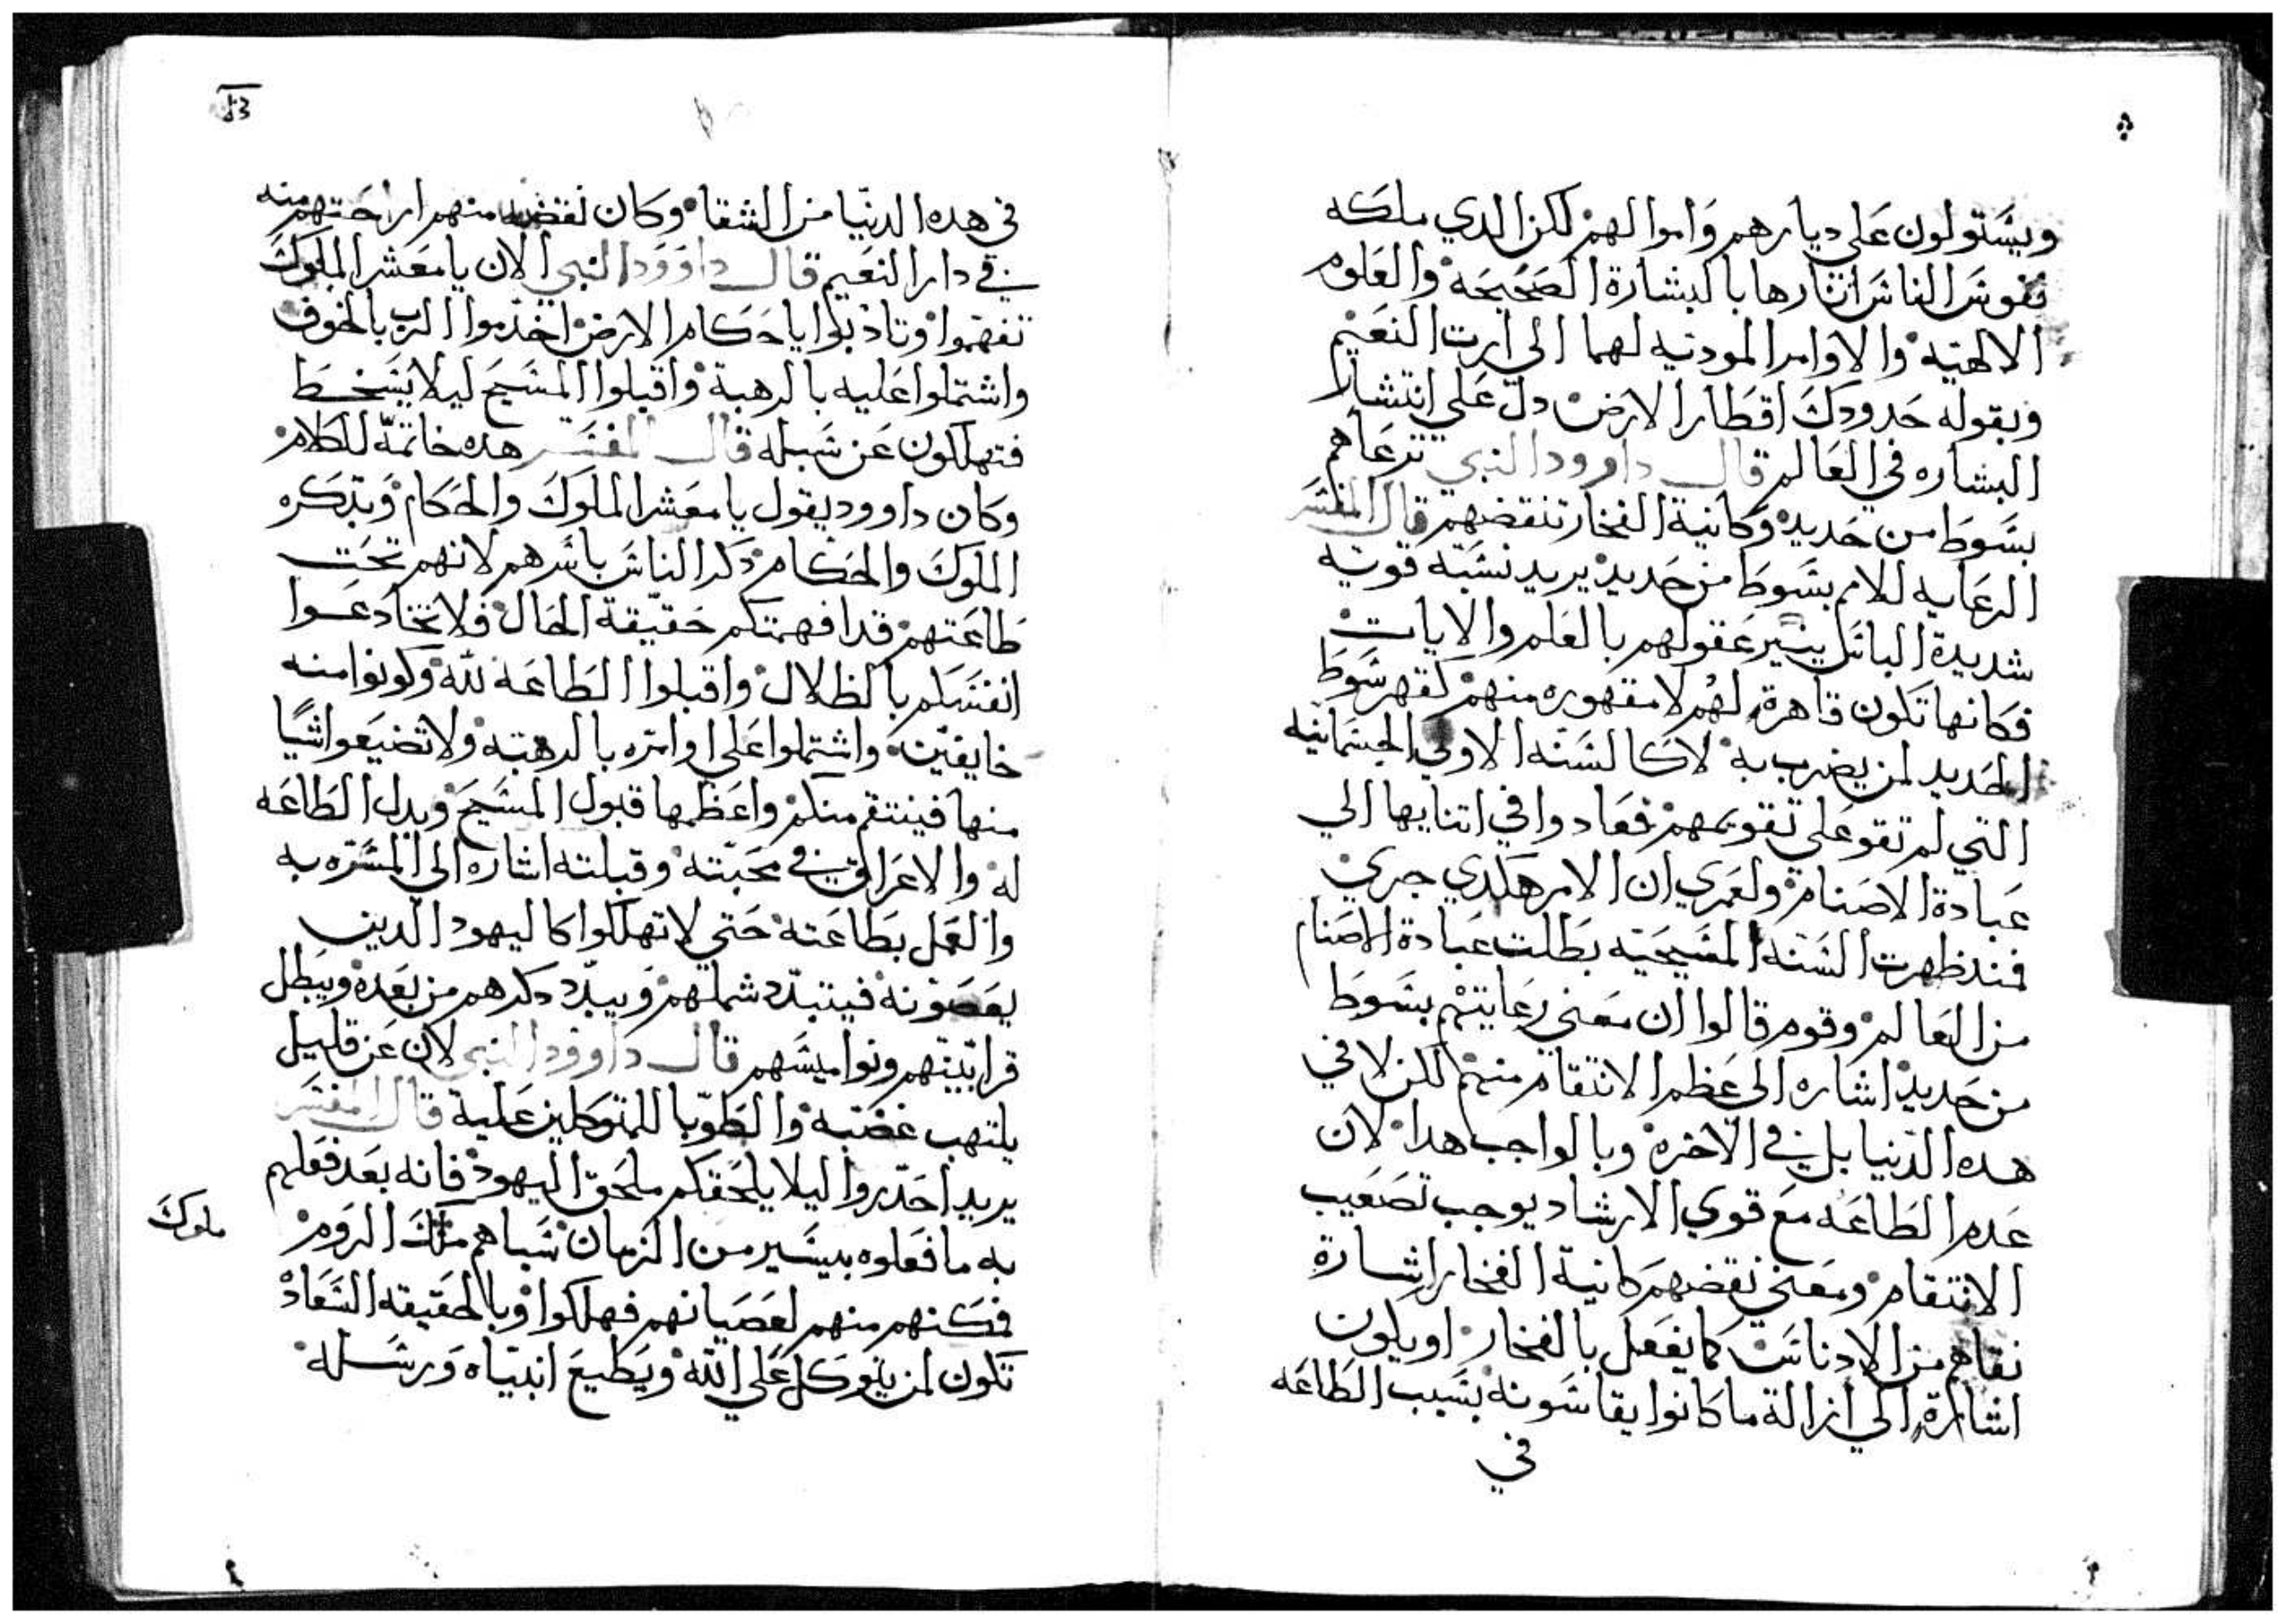 ويستولون على ديارهم واموالهم لكن الدي ملكه
نفوس الناس اثارها بالبشارة الصحيحه والعلوم
الالهيه والاوامر المودنيه لهما الي ارت النعيم
وبقوله حدودك اقطار الارض دل على انتشار
البشاره في العالم قال داوود النبي ترعاهم
بسوط من حديد وكانية الفخار تنقضهم قال المفسر
الرعايه للامم بسوط من حديد يريد نسبه قويه
شديدة الباس ينير عقولهم بالعلم والايات
فكانها تكون قاهرة لهم لا مقهوره منهم كقهر سوط
الحديد لمن يضرب به لا كالسنه الاولي الجسمانيه
التي لم تقو على تقويمهم فعادوا في اتنايها الي
عبادة الاصنام ولعمري ان الامر هكدي جري
فمند ظهرت السنه المسيحيه بطلت عبادة الاصنام
من العالم وقوم قالوا ان معني رعايتهم بسوط
من حديد اشاره الى عظم الانتقام منهم لكن لا في
هده الدنيا بل في الاخره وبالواجب هدا لان
عدم الطاعه مع قوي الارشاد يوجب تصعيب
الانتقام ومعني نقضهم كانية الفخار اشارة
نقاهم من الادناس كما يفعل بالفخار او يكون
اشارة الي ازالة ما كانوا يقاسونه بسبب الطاعه
في
في هده الدنيا من الشقا وكان نقضه منهم اراحتهم منه
في دار النعيم قال داوود النبي الان يا معشر الملوك
تفهموا وتادبوا يا حكام الارض اخدموا الرب بالخوف
واشتملوا عليه بالرهبة واقبلوا المسيح ليلا يسخط
فتهلكون عن سبله قال المفسر هده خاتمة للكلام
وكان داوود يقول يا معشر الملوك والحكام وبدكره
الملوك والحكام دكر الناس باسرهم لانهم تحت
طاعتهم قد افهمتكم حقيقة الحال فلا تخادعوا
انفسكم بالظلال واقبلوا الطاعه لله وكونوا منه
خايفين واشتملوا على اوامره بالرهبه ولا تضيعوا شيا
منها فينتقم منكم واعظمها قبول المسيح وبدل الطاعه
له والاغراق في محبته وقبلته اشاره الى المسره به
والعمل بطاعته حتي لا تهلكوا كاليهود الدين
يعصونه فيتبدد شملهم ويبدد دكرهم من بعده ويبطل
قرابينهم ونواميسهم قال داوود النبي لان عن قليل
يلتهب غضبه والطوبا للمتوكلين عليه قال المفسر
يريد احدروا ليلا يلحقكم ما لحق اليهود فانه بعد فعلهم
به ما فعلوه بيسير من الزمان سباهم ملك الروم
ملوك
فمكنهم منهم لعصيانهم فهلكوا وبالحقيقه السعاده
تكون لمن يتوكل علي الله ويطيع انبياه ورسله